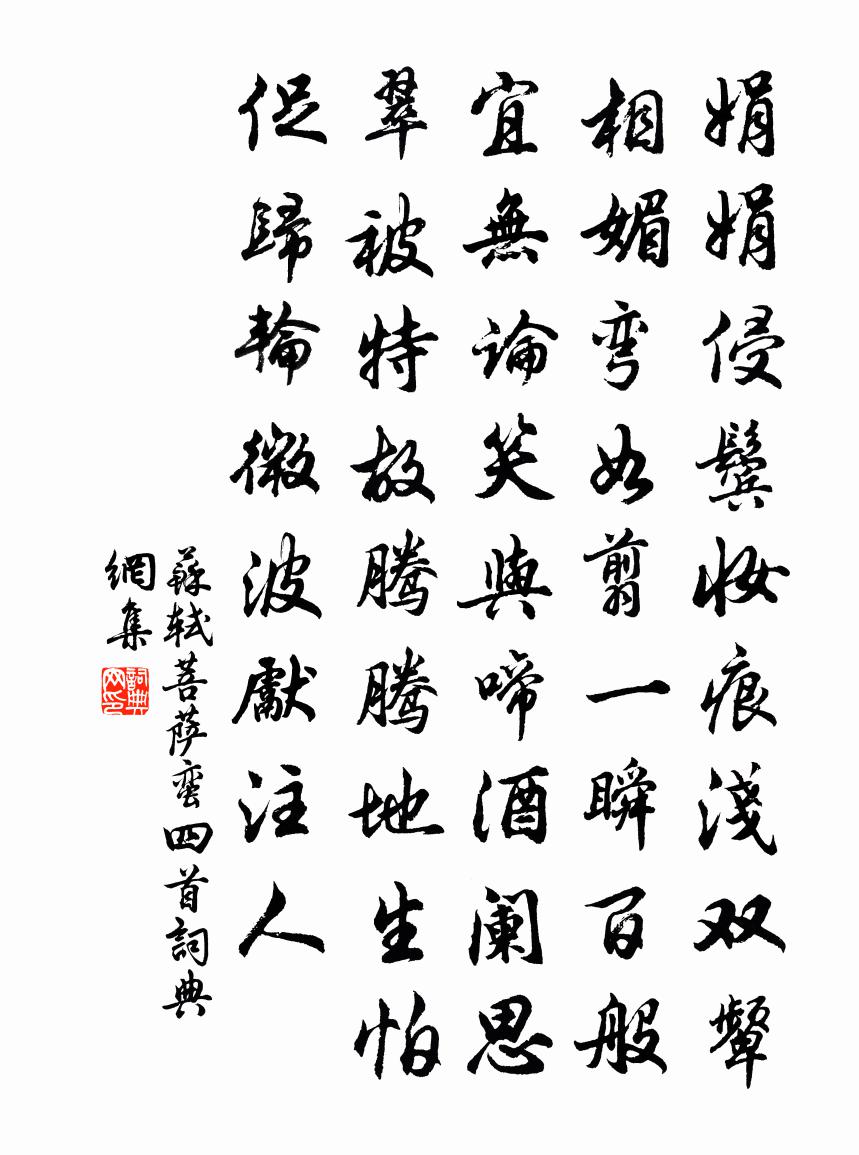 娟娟侵鬓妆痕淺双颦
相媚彎如翦一瞬百般
宜無論笑與啼酒阑思
翠被特故腾腾地生怕
促歸輪微波獻注人
蘇轼菩萨蛮四首詞典
網集
詞典网印